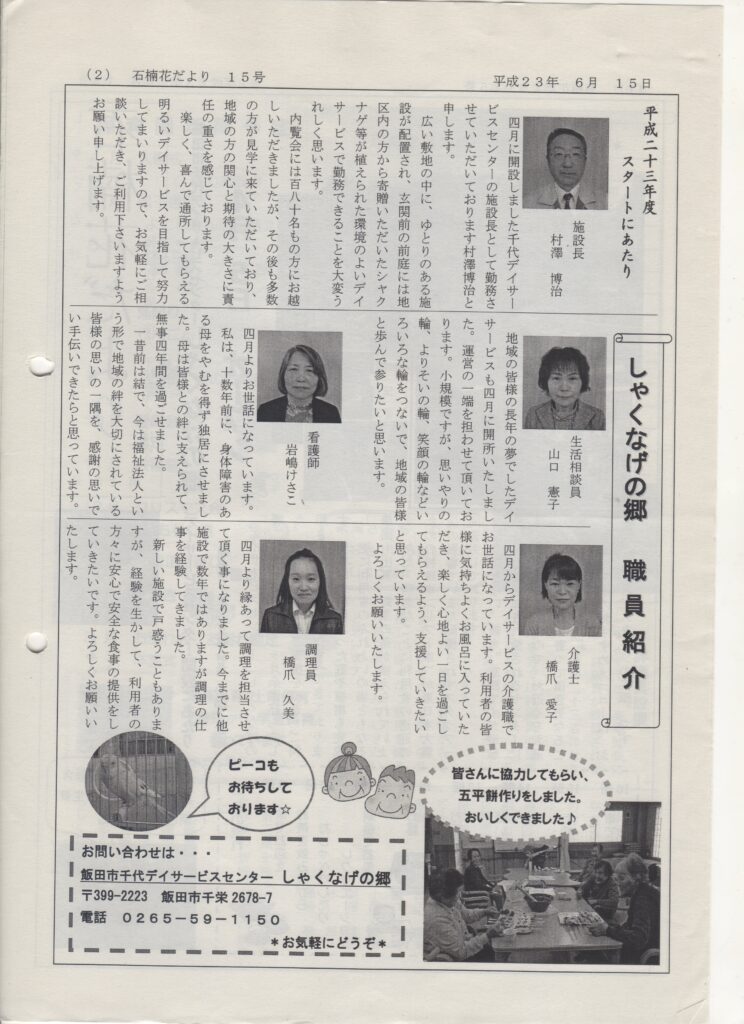 (2) 石楠花だより 15号
平成23年 6月 15日
平成二十三年度
スタートにあたり
施設長
村澤 博治
四月に開設しました千代デイサー
ビスセンターの施設長として勤務さ
せていただいております村澤博治と
申します。
広い敷地の中に、ゆとりのある施
設が配置され、玄関前の前庭には地
区内の方から寄贈いただいたシャク
ナゲ等が植えられた環境のよいデイ
サービスで勤務できることを大変う
れしく思います。
内覧会には百八十名もの方にお越
しいただきましたが、その後も多数
の方が見学に来ていただいており、
地域の方の関心と期待の大きさに責
任の重さを感じております。
楽しく、喜んで通所してもらえる
明るいデイサービスを目指して努力
してまいりますので、お気軽にご相
談いただき、ご利用下さいますよう
お願い申し上げます。
しゃくなげの郷 職員紹介
生活相談員
山口 憲子
地域の皆様の長年の夢でしたデイ
サービスも四月に開所いたしまし
た。運営の一端を担わせて頂いてお
ります。小規模ですが、思いやりの
輪、よりそいの輪、笑顔の輪などい
ろいろな輪をつないで、地域の皆様
と歩んで参りたいと思います。
看護師
岩嶋けさこ
四月よりお世話になっています。
私は、十数年前に、身体障害のあ
る母をやむを得ず独居にさせまし
た。母は皆様との絆に支えられて、
無事四年間を過ごせました。
一昔前は結で、今は福祉法人とい
う形で地域の絆を大切にされている
皆様の思いの一隅を、感謝の思いで
い手伝いできたらと思っています。
介護士
橋爪 愛子
四月からデイサービスの介護職で
お世話になっています。利用者の皆
様に気持ちよくお風呂に入っていた
だき、楽しく心地よい一日を過ごし
てもらえるよう、支援していきたい
と思っています。
よろしくお願いいたします。
調理員
橋爪 久美
四月より縁あって調理を担当させ
て頂く事になりました。今までに他
施設で数年ではありますが調理の仕
事を経験してきました。
新しい施設で戸惑うこともありま
すが、経験を生かして、利用者の
方々に安心で安全な食事の提供をし
ていきたいです。よろしくお願いい
たします。
皆さんに協力してもらい、
五平餅作りをしました。
おいしくできました♪
ピーコも
お待ちして
おります☆
お問い合わせは・・・
飯田市千代デイサービスセンター しゃくなげの郷
〒399-2223 飯田市千栄 2678-7
電話 0265-59-1150
＊お気軽にどうぞ＊